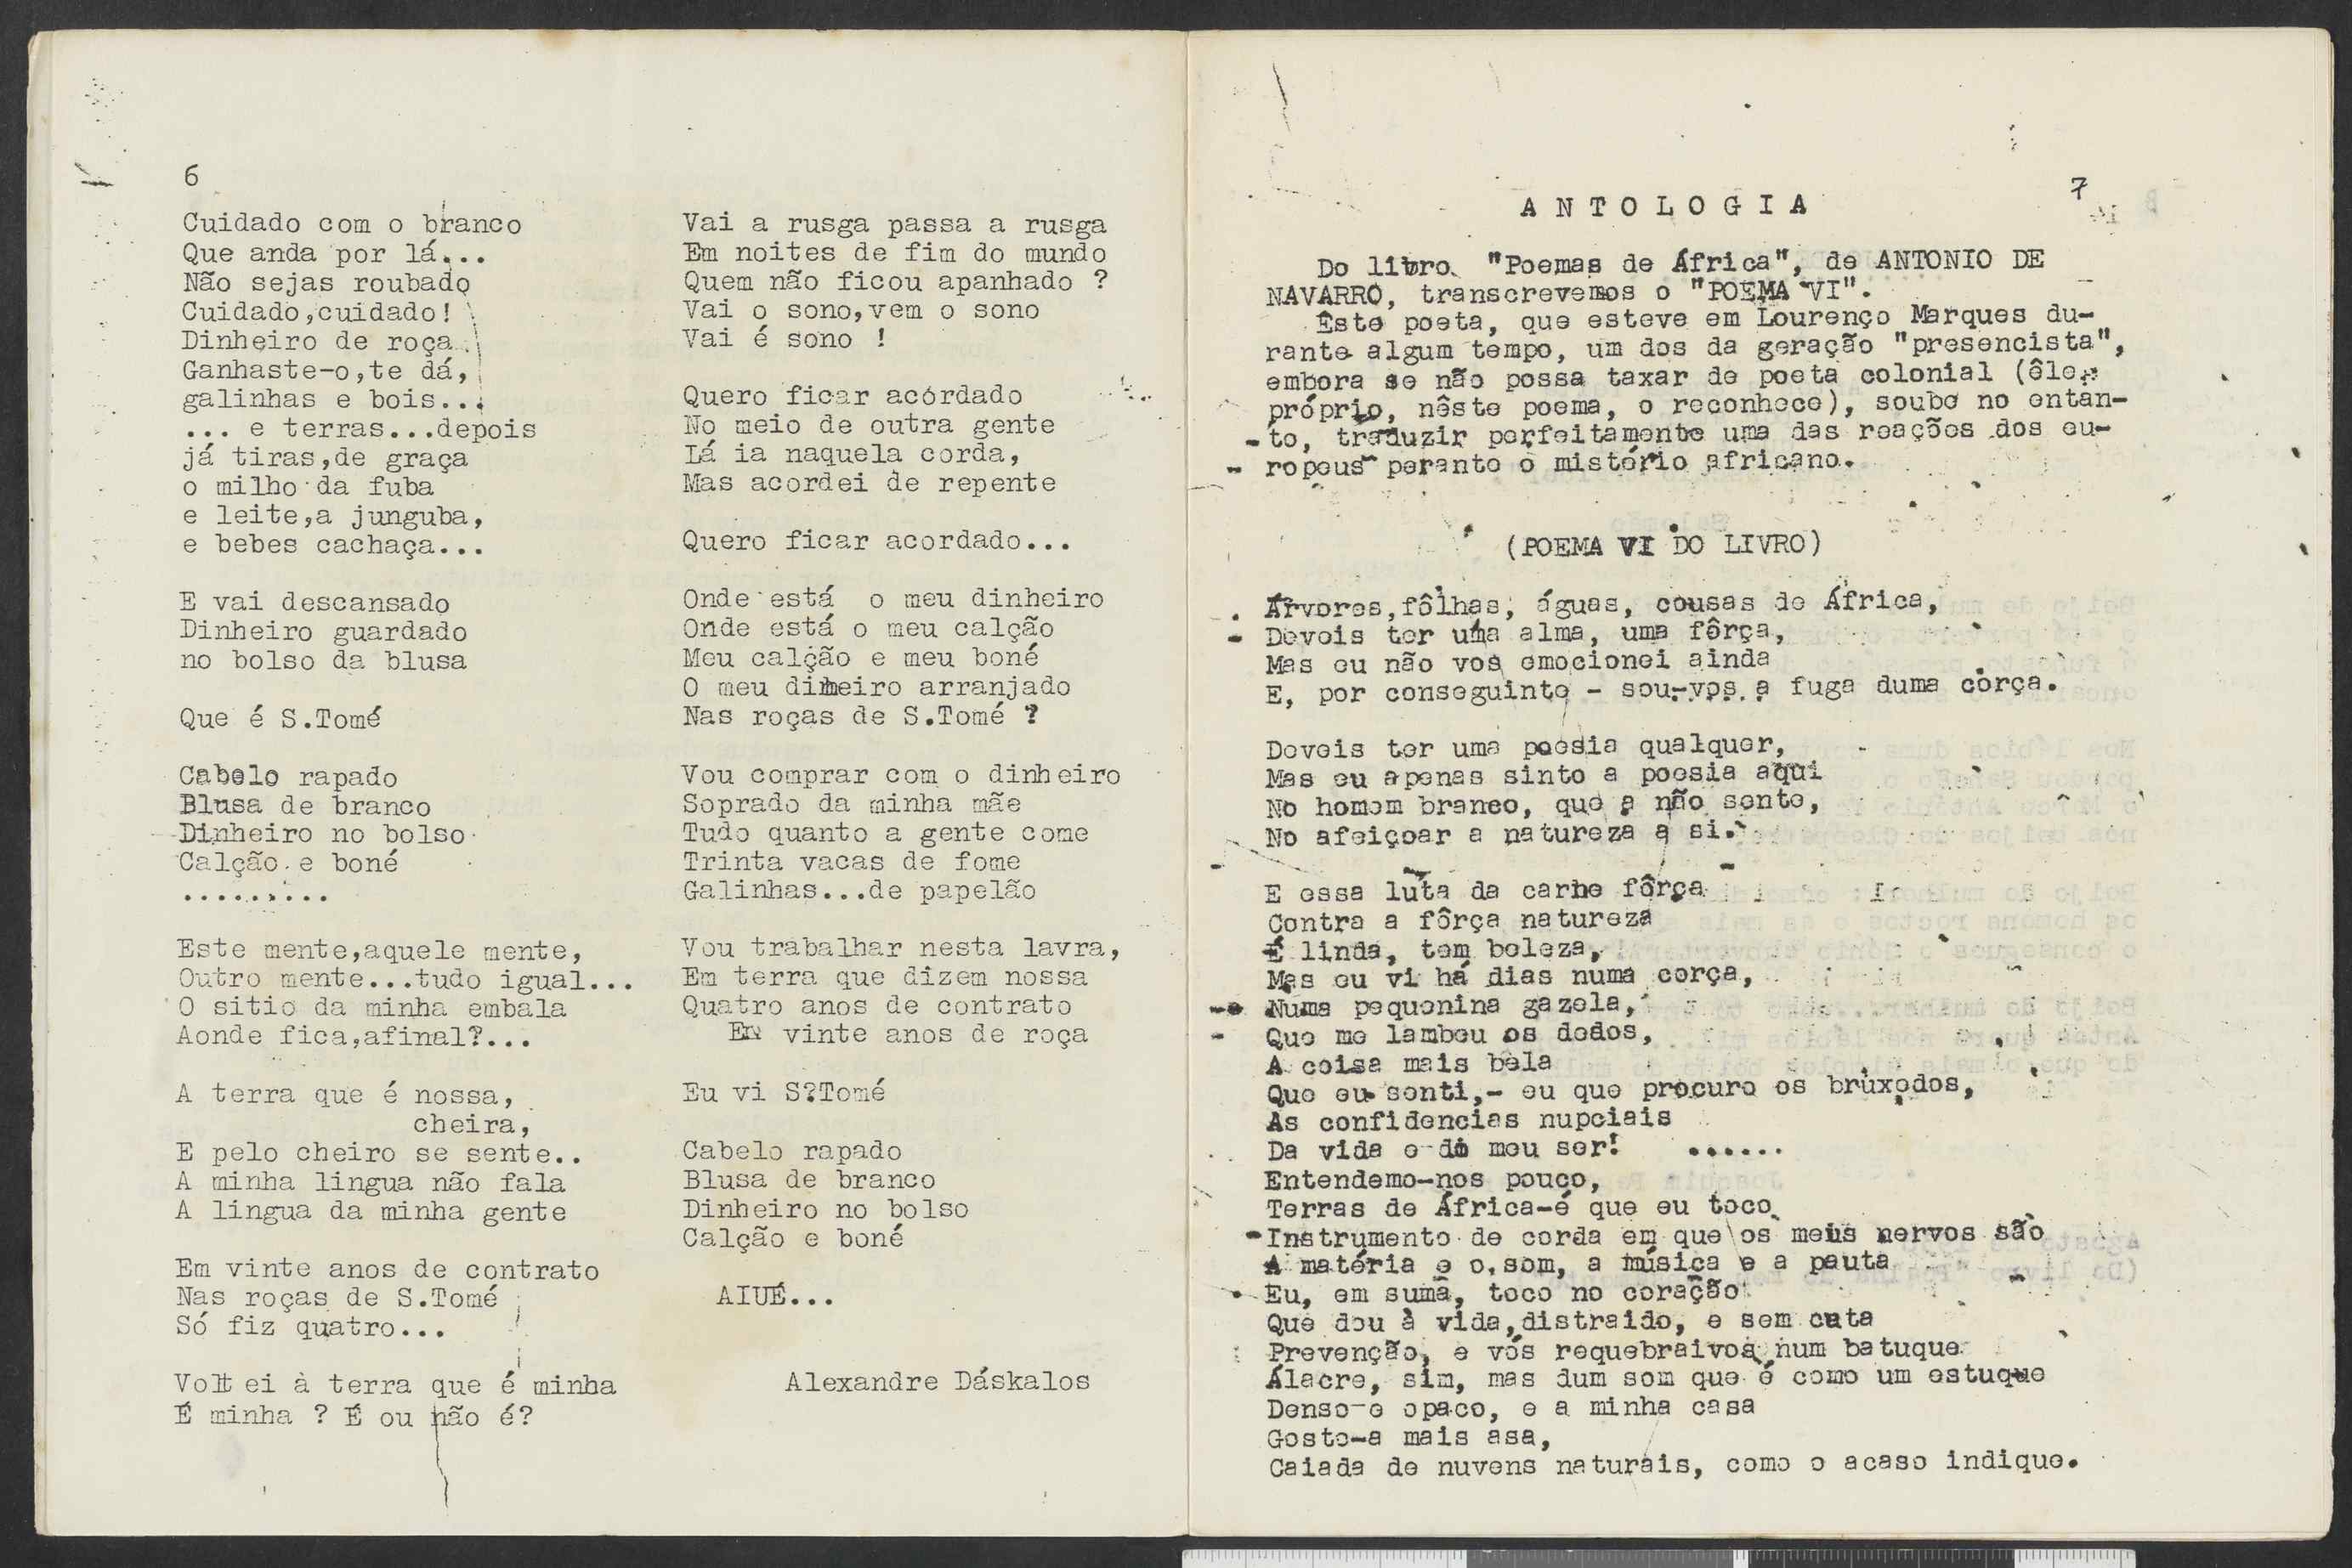 6
Cuidado com o branco
Que anda por lá...
Não sejas roubado
Cuidado,cuidado!
Dinheiro de roça
Ganhaste-o,te dá,
galinhas e bois...
... e terras...depois
já tiras,de graça
o milho da fuba
e leite,a junguba,
e bebes cachaça...
E vai descansado
Dinheiro guardado
no bolso da blusa
Que é S.Tomé
Cabelo rapado
Blusa de branco
Dinheiro no bolso
Calção e boné
.........
Este mente,aquele mente,
Outro mente...tudo igual...
O sitio da minha embala
Aonde fica,afinal?...
A terra que é nossa,
cheira,
E pelo cheiro se sente..
A minha lingua não fala
A lingua da minha gente
Em vinte anos de contrato
Nas roças de S.Tomé
Só fiz quatro...
Volt ei à terra que é minha
É minha ? É ou não é?
Vai a rusga passa a rusga
Em noites de fim do mundo
Quem não ficou apanhado ?
Vai o sono,vem o sono
Vai é sono !
Quero ficar acordado
No meio de outra gente
Lá ia naquela corda,
Mas acordei de repente
Quero ficar acordado...
Onde está o meu dinheiro
Onde está o meu calção
Meu calção e meu boné
O meu dinheiro arranjado
Nas roças de S.Tomé ?
Vou comprar com o dinheiro
Soprado da minha mãe
Tudo quanto a gente come
Trinta vacas de fome
Galinhas...de papelão
Vou trabalhar nesta lavra,
Em terra que dizem nossa
Quatro anos de contrato
Em vinte anos de roça
Eu vi S?Tomé
Cabelo rapado
Blusa de branco
Dinheiro no bolso
Calção e boné
AIUÉ...
Alexandre Dáskalos
7
ANTOLOGIA
Do livro "Poemas de África", de ANTONIO DE
NAVARRO, transcrevemos o "POEMA VI".
Êste poeta, que esteve em Lourenço Marques du-
rante algum tempo, um dos da geração "presencista",
embora se não possa taxar de poeta colonial (êle
próprio, nêste poema, o reconhece), soube no entan-
to, traduzir perfeitamente uma das reações dos eu-
ropeus perante o mistério africano.
(POEMA VI DO LIVRO)
Árvores,fôlhas, águas, cousas de África,
Deveis ter uma alma, uma fôrça,
Mas eu não vos emocionei ainda
E, por conseguinte - sou-vos a fuga duma corça.
Deveis ter uma poesia qualquer,
Mas eu apenas sinto a poesia aqui
No homem branco, que a não sente,
No afeiçoar a natureza a si.
E essa luta da carne fôrça
Contra a fôrça natureza
É linda, tem beleza,
Mas eu vi há dias numa corça,
Numa pequenina gazela,
Que me lambeu os dedos,
A coisa mais bela
Que eu senti,- eu que procuro os brùxedos,
As confidencias nupciais
Da vida e do meu ser! ......
Entendemo-nos pouco,
Terras de África-é que eu toco
Instrumento de corda em que os meus nervos são
A matéria e o som, a música e a pauta
Eu, em suma, toco no coração
Que dou à vida,distraido, e sem cuta
Prevenção, e vós requebraivos num batuque
Álacre, sim, mas dum som que é como um estuque
Denso e opaco, e a minha casa
Gosto-a mais asa,
Caiada de nuvens naturais, como o acaso indique.